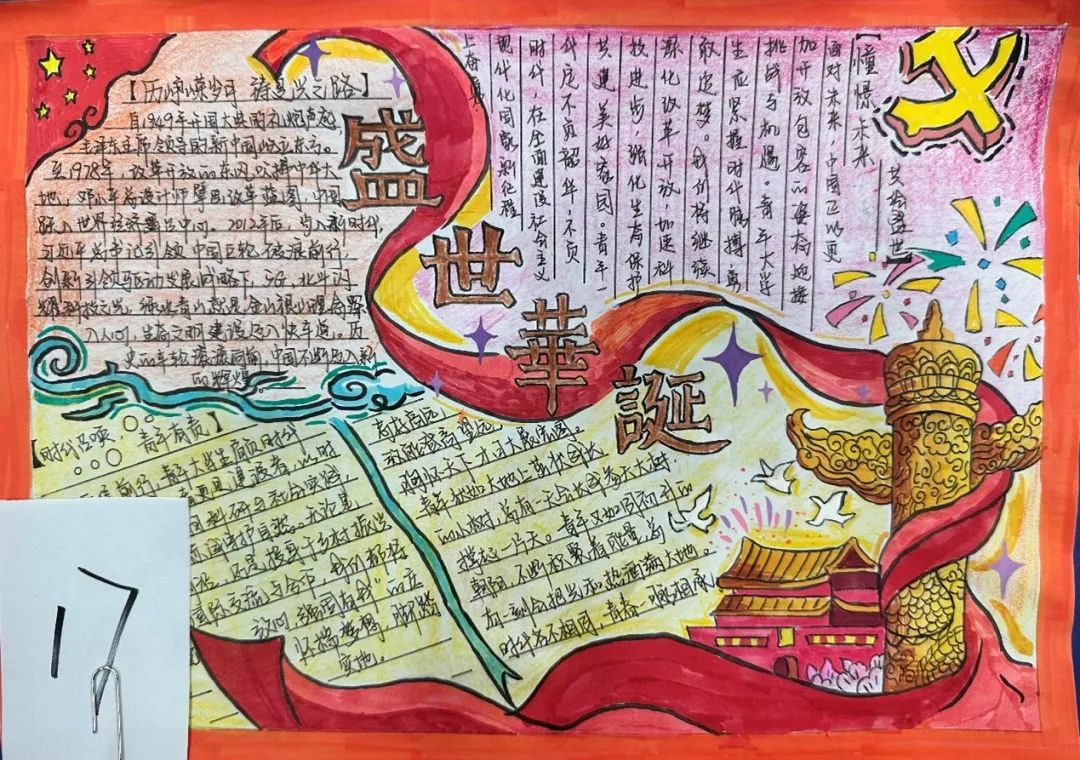 盛世華誕
【历峥嵘岁月 铸复兴之路】
自1949年开国大典的礼炮声起,
毛泽东主席领导的新中国屹立东方。
至1978年,改革开放的东风吹拂中华大
地,邓小平总设计师擘画改革蓝图,中国
跃入世界经济舞台中间。2012年后,步入新时代,
习近平总书记引领中国巨轮破浪前行,
创新引领驱动发展战略下,5G、北斗闪
耀科技之光。绿水青山就是金山银山理念深
入人心,生态文明建设迈入快车道。历
史的车轮滚滚向前,中国不断迈入新
的辉煌。
【憧憬未来 共绘盛世】
面对未来,中国正以更
加开放包容的姿态迎接
挑战与机遇。青年大学
生应紧握时代脉搏,勇
敢追梦。我们将继续
深化改革开放,加速科
技进步,强化生态保护
共建美好家园。青年一
代定不负韶华,不负
时代,在全面建设社会主义
现代化国家新征程
上奋勇
【时代召唤 青年有责】
前行,青年大学生肩负时代
更是建设者,
科研与社会实践,
国护自强。无论是
还是投身于乡村振兴
国际交流与合作,我们都将
访问"强国有我"的应
怀揣梦想,脚踏
实地。
志存高远
方能越高望远
胸怀天下才可大展宏图。
青年犹如大地上茁壮成长
的小树,总有一天会长成参天大树,
撑起一片天。青年又如同初升的
朝阳,不断积聚着能量,总
有一刻会把光和热洒满大地。
时代各不相同,青春一脉相承。
17